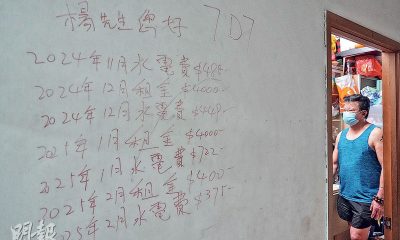 楊先生您好 7D7
2024年11月水電費$485-
2024年12月租金$4000-
2024年12月水電費$449-
2025年1月租金$4000-
2025年1月水電費$722-
2025年2月租金$400-
2025年2月水電費$375-
明報